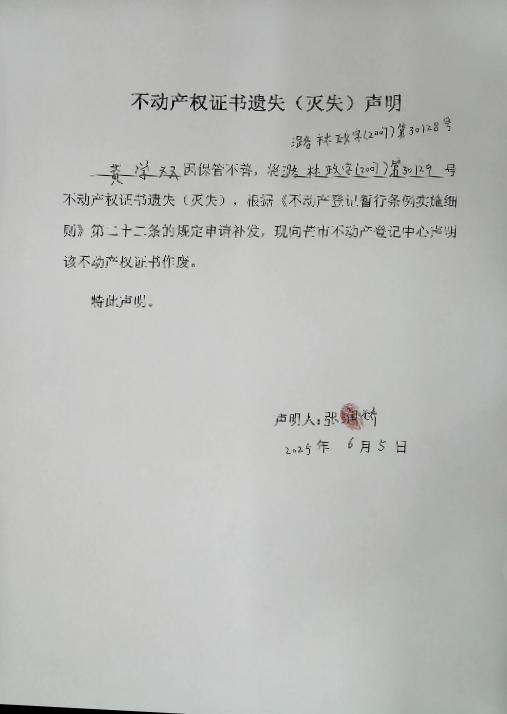 不动产权证书遗失（灭失）声明
潞林政字(2007)第30128号
黄学双因保管不善，将潞林政字(2007)第30129号
不动产权证书遗失（灭失），根据《不动产登记暂行条例实施细
则》第二十二条的规定申请补发，现向芒市不动产登记中心声明
该不动产权证书作废。
特此声明。
声明人：张润娇
2025年 6月5日